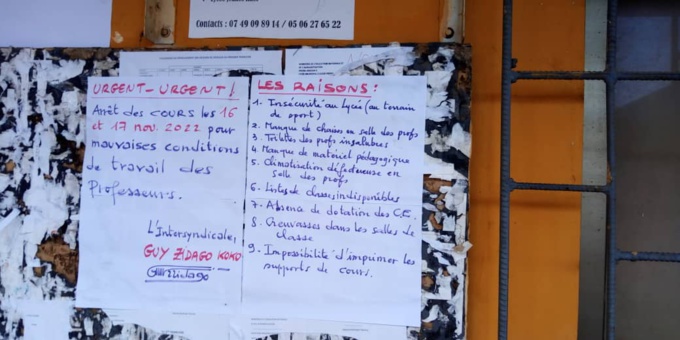 Contacts : 07 49 09 89 14 / 05 06 27 65 22
URGENT-URGENT!
Arrêt des COURS les 16
et 17 nov. 2022 pour
mauvaises conditions
de travail des
Professeurs.
L'Intersyndicale,
GUY ZIDAGO KOKO
LES RAISONS :
1- Insécurité au Lycée (au terrain
de sport)
2. Manque de chaises en salle des profs
3. Toilettes des profs insalubres
4. Manque de matériel pédagogique
5. Climatisation défectueuse en
salle des profs
6- Listes de classes indisponibles
7- Absence de dotation des C.E.
8- Crevasses dans les salles de
classe
9- Impossibilité d'imprimer les
supports de cours.